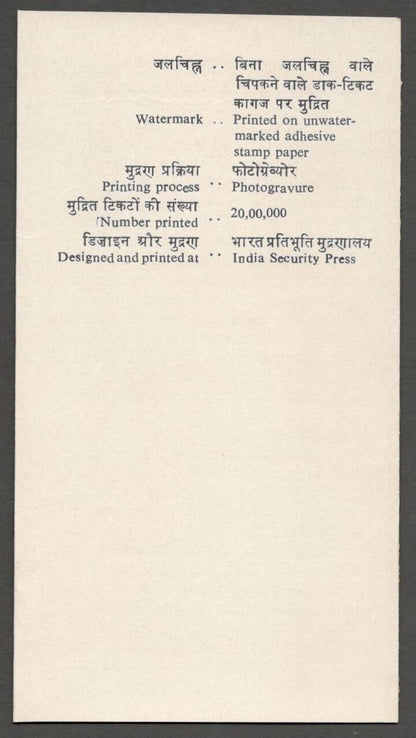 जलचिह्न .. बिना जलचिह्न वाले
चिपकने वाले डाक-टिकट
कागज पर मुद्रित
Watermark .. Printed on unwater-
marked adhesive
stamp paper
मुद्रण प्रक्रिया फोटोग्रेव्योर
Printing process .. Photogravure
मुद्रित टिकटों की संख्या
Number printed .. 20,00,000
डिज़ाइन और मुद्रण भारत प्रतिभूति मुद्रणालय
Designed and printed at .. India Security Press